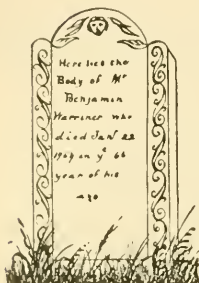 Here lies the
Body of Mr
Benjamin
Warriner who
died Janr 22
on ye 66
year of his
age